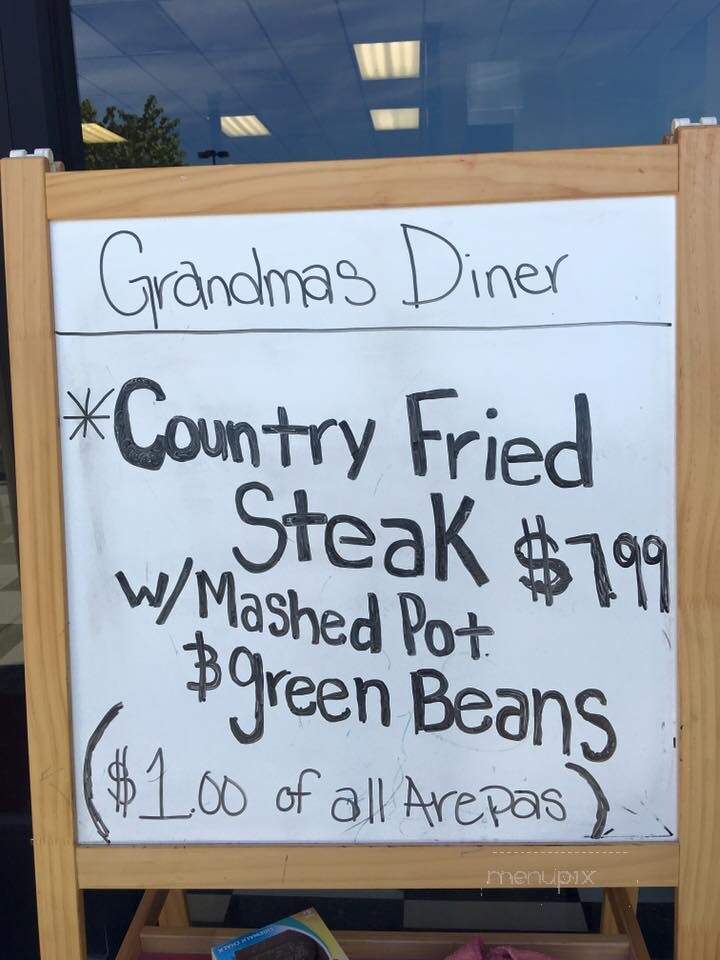 Grandmas Diner
*Country Fried
Steak $7.99
w/Mashed Pot.
& green Beans
($1.00 of all Arepas)
menupix
SIDEWALK CHALK